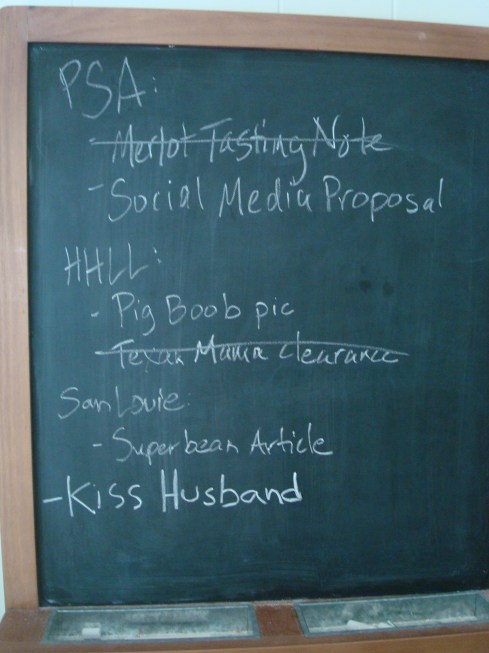 PSA:
- Merlot Tasting Note
- Social Media Proposal
HHLL:
- Pig Boob pic
- Texan Mama clearance
San Louie:
- Superbean Article
- Kiss Husband